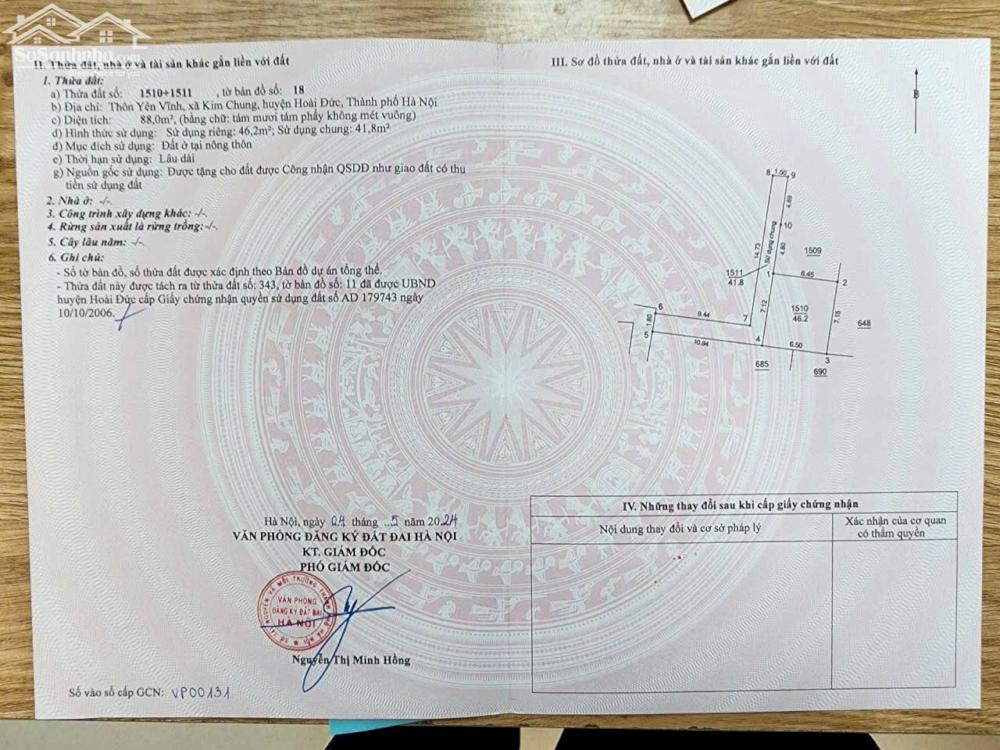 SoSanhnha.com
II. Thửa đất, nhà ở và tài sản khác gắn liền với đất
1. Thửa đất:
a) Thửa đất số: 1510+1511 , tờ bản đồ số: 18
b) Địa chỉ: Thôn Yên Vĩnh, xã Kim Chung, huyện Hoài Đức, Thành phố Hà Nội
c) Diện tích: 88,0m², (bằng chữ: tám mươi tám phẩy không mét vuông)
d) Hình thức sử dụng: Sử dụng riêng: 46,2m²; Sử dụng chung: 41,8m²
đ) Mục đích sử dụng: Đất ở tại nông thôn
e) Thời hạn sử dụng: Lâu dài
g) Nguồn gốc sử dụng: Được tặng cho đất được Công nhận QSDĐ như giao đất có thu
tiền sử dụng đất
2. Nhà ở: -/-.
3. Công trình xây dựng khác: -/-.
4. Rừng sản xuất là rừng trồng:-/-.
5. Cây lâu năm: -/-.
6. Ghi chú:
- Số tờ bản đồ, số thửa đất được xác định theo Bản đồ dự án tổng thể.
- Thửa đất này được tách ra từ thửa đất số: 343, tờ bản đồ số: 11 đã được UBND
huyện Hoài Đức cấp Giấy chứng nhận quyền sử dụng đất số AD 179743 ngày
10/10/2006.
Hà Nội, ngày 04 tháng 5 năm 2024
VĂN PHÒNG ĐĂNG KÝ ĐẤT ĐAI HÀ NỘI
KT. GIÁM ĐỐC
PHÓ GIÁM ĐỐC
VĂN PHÒNG
ĐĂNG KÝ ĐẤT ĐAI
HÀ NỘI
Nguyễn Thị Minh Hồng
Số vào sổ cấp GCN: VP00131
III. Sơ đồ thửa đất, nhà ở và tài sản khác gắn liền với đất
B
8 1.50 9
4.69
10
14.73
Sử dụng chung
4.80
1509
1511
41.8
1
6.45
2
7.12
1510
46.2
7.15
648
6
9.44
7
1.80
5
10.94
4
6.50
3
685
690
IV. Những thay đổi sau khi cấp giấy chứng nhận
Nội dung thay đổi và cơ sở pháp lý
Xác nhận của cơ quan
có thẩm quyền